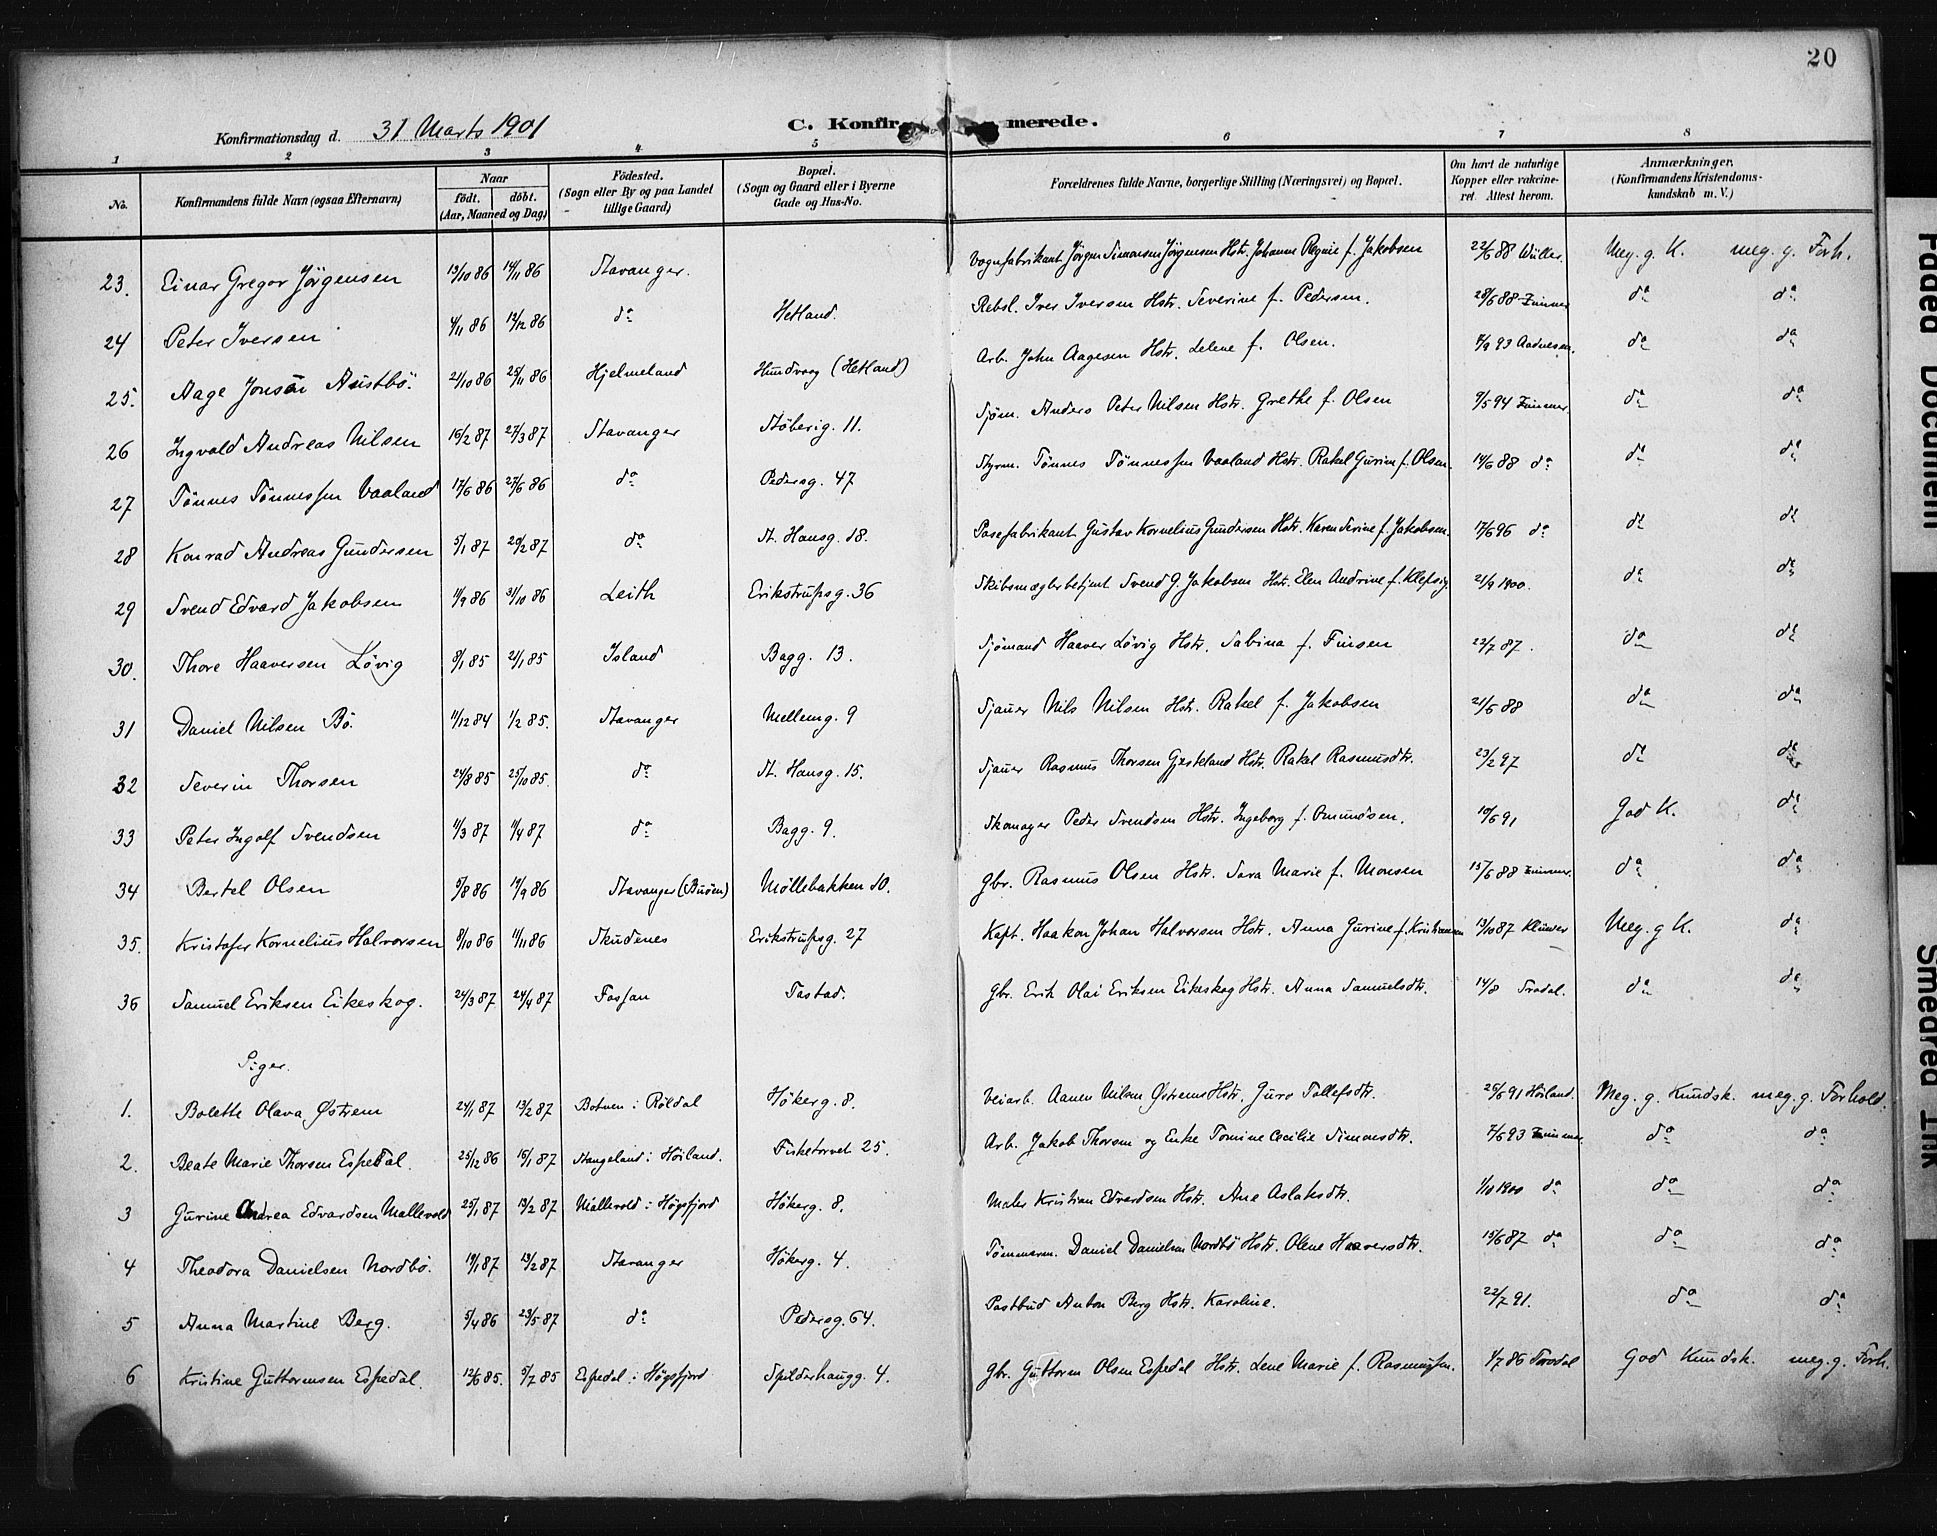 20
Konfirmationsdag d. 31 Marts 1901
C. Konfirmerede.
1 2 3 4 5 6 7 8
No. Konfirmandens fulde Navn (ogsaa Efternavn) Naar födt. döbt. (Aar, Maaned og Dag) Födested. (Sogn eller By og paa Landet tillige Gaard) Bopæl. (Sogn og Gaard eller i Byerne Gade og Hus-No. Forældrenes fulde Navne, borgerlige Stilling (Næringsvei) og Bopæl. Om havt de naturlige Kopper eller vakcineret. Attest herom. Anmærkninger. (Konfirmandens Kristendomskundskab m. V.)
23. Einar Gregor Jörgensen 13/10 86 14/11 86 Stavanger. Vognfabrikant Jörgen Simonsen Jörgensen Hstr. Johanne Regine f. Jakobsen 22/6 88 Müller. Meg. g. K. meg. g. Forh.
24 Peter Iversen 4/11 86 12/12 86 do Hetland. Rebsl. Iver Iversen Hstr. Severine f. Pedersen. 28/6 88 Zimmer do do
25. Aage Jonsen Austbö. 21/10 86 25/11 86 Hjelmeland Hundvaag (Hetland) Arb. John Aagesen Hstr. Lelene f. Olsen. 7/9 93 Aadnesen. do do
26 Ingvald Andreas Nilsen 16/2 87 27/3 87 Stavanger Støberig. 11. Sjöm. Anders Peter Nilsen Hstr. Grethe f. Olsen 9/5 94 Zimmer. do do
27 Tönnes Tönnessen Vaaland 17/6 86 27/6 86 do Pedersg. 47 Styrm. Tönnes Tönnessen Vaaland Hstr. Rakel Gurine f. Olsen. 14/6 88 do do do
28 Konrad Andreas Gundersen 5/1 87 20/2 87 do St. Hansg. 18. Posefabrikant Gustav Kornelius Gundersen Hstr. Karen Serine f. Jakobsen. 17/6 96 do do do
29 Svend Edvard Jakobsen 11/9 86 31/10 86 Leith Erikstrupsg. 36 Skibsmæglerbetjent Svend G. Jakobsen Hstr. Elen Andrine f. Klepsig. 21/9 1900. do do
30. Thore Haaversen Løvig 8/1 85 21/1 85 Island Bagg. 13. Sjömand Haaver Løvig Hstr. Sabina f. Finsen 22/7 87. do do
31 Daniel Nilsen Bö. 11/12 84 1/2 85. Stavanger Mellemg. 9 Sjauer Nils Nilsen Hstr. Rakel f. Jakobsen 21/6 88 do do
32 Severin Thorsen 24/8 85 25/10 85. do St. Hansg. 15. Sjauer Rasmus Thorsen Gjesteland Hstr. Rakel Rasmusdtr. 23/2 97 do do
33 Peter Ingolf Svendsen 11/3 87 11/4 87 do Bagg. 9. Skomager Peder Svendsen Hstr. Ingeborg f. Omundsen. 10/6 91 God K. do
34 Bertel Olsen 5/8 86 19/9 86 Stavanger (Buöen) Møllebakken 10. Gbr. Rasmus Olsen Hstr. Sara Marie f. Monsen 15/6 88 Zimmer. do do
35. Kristofer Kornelius Halvorsen 8/10 86 11/11 86 Skudenes Erikstrupsg. 27 Kapt. Haakon Johan Halvorsen Hstr. Anna Gurine f. Kristiansen 13/10 87 Kluwer Meg. g K. do
36 Samuel Eriksen Eikeskog. 24/3 87 24/4 87 Fossan Tastad. Gbr. Erik Olai Eriksen Eikeskog Hstr. Anna Samuelsdtr. 14/8 Svodal. do do
Piger.
1. Bolette Olava Østrem 24/1 87 13/2 87 Botnen i Röldal Hökerg. 8. Veiarb. Aanen Nilsen Østrem Hstr. Guro Tollefsdtr. 26/6 91 Höiland. Meg. g. Kundsk. meg. g. Forhold.
2. Beate Marie Thorsen Espedal. 25/12 86 16/1 87 Stangeland i Höiland. Fisketorvet 25. Arb. Jakob Thorsen og Enke Tomine Cecilie Simonsdtr. 7/6 93 Zimmer do do
3 Gurine Andrea Edvardsen Mallevold 25/1 87 13/2 87 Mallevold i Högsfjord Hökerg. 8. Maler Kristian Edvardsen Hstr. Ane Aslaksdtr. 1/10 1900 do do do
4 Theodora Danielsen Nordbö. 19/1 87 13/2 87 Stavanger Hökerg. 4. Tömmerm. Daniel Danielsen Nordbö Hstr. Olene Haaversdtr. 15/6 87 do do do
5 Anna Martine Berg. 5/4 86 23/5 87 do Pedersg. 64. Postbud Anton Berg Hstr. Karoline. 22/7 91. do do
6 Kristine Guttormsen Espedal. 12/6 85. 5/7 85 Espedal i Högsfjord Spilderhaugg. 4. Gbr. Guttorm Olsen Espedal Hstr. Lene Marie f. Rasmussen. 1/7 86 Svodal God Kundsk. meg. g. Forh.
Faded Document
Smeared Ink